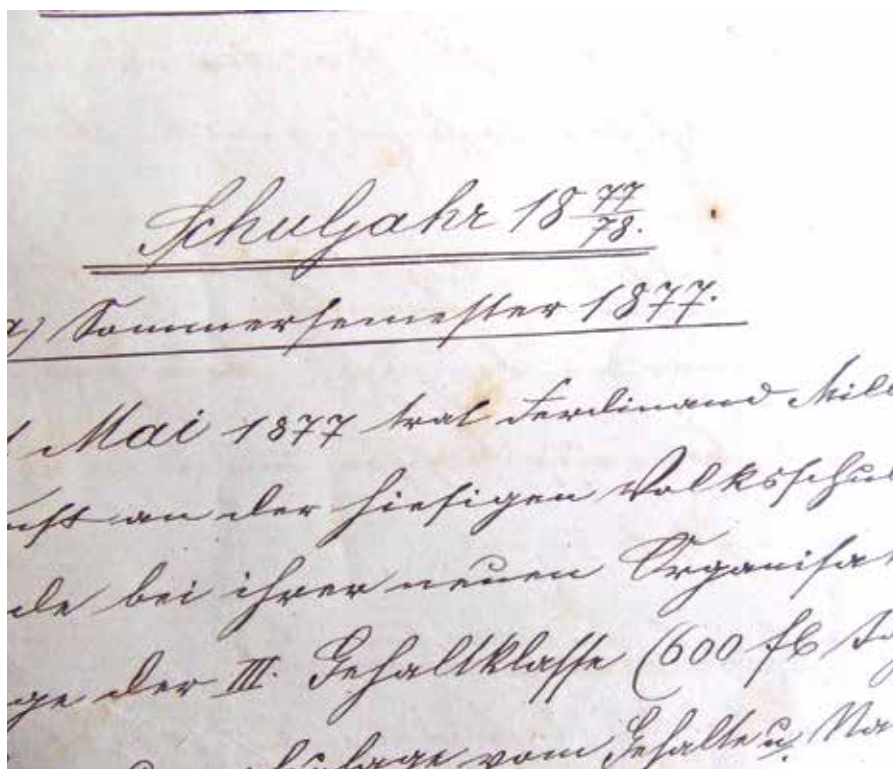 Schuljahr 18 77/78.
a) Sommersemester 1877.
Mai 1877 trat Ferdinand
an der hiesigen Volksschul
de bei ihrer neuen Organisa
ge der III. Gehaltklasse (600 fl
vom Gehalte u. Na